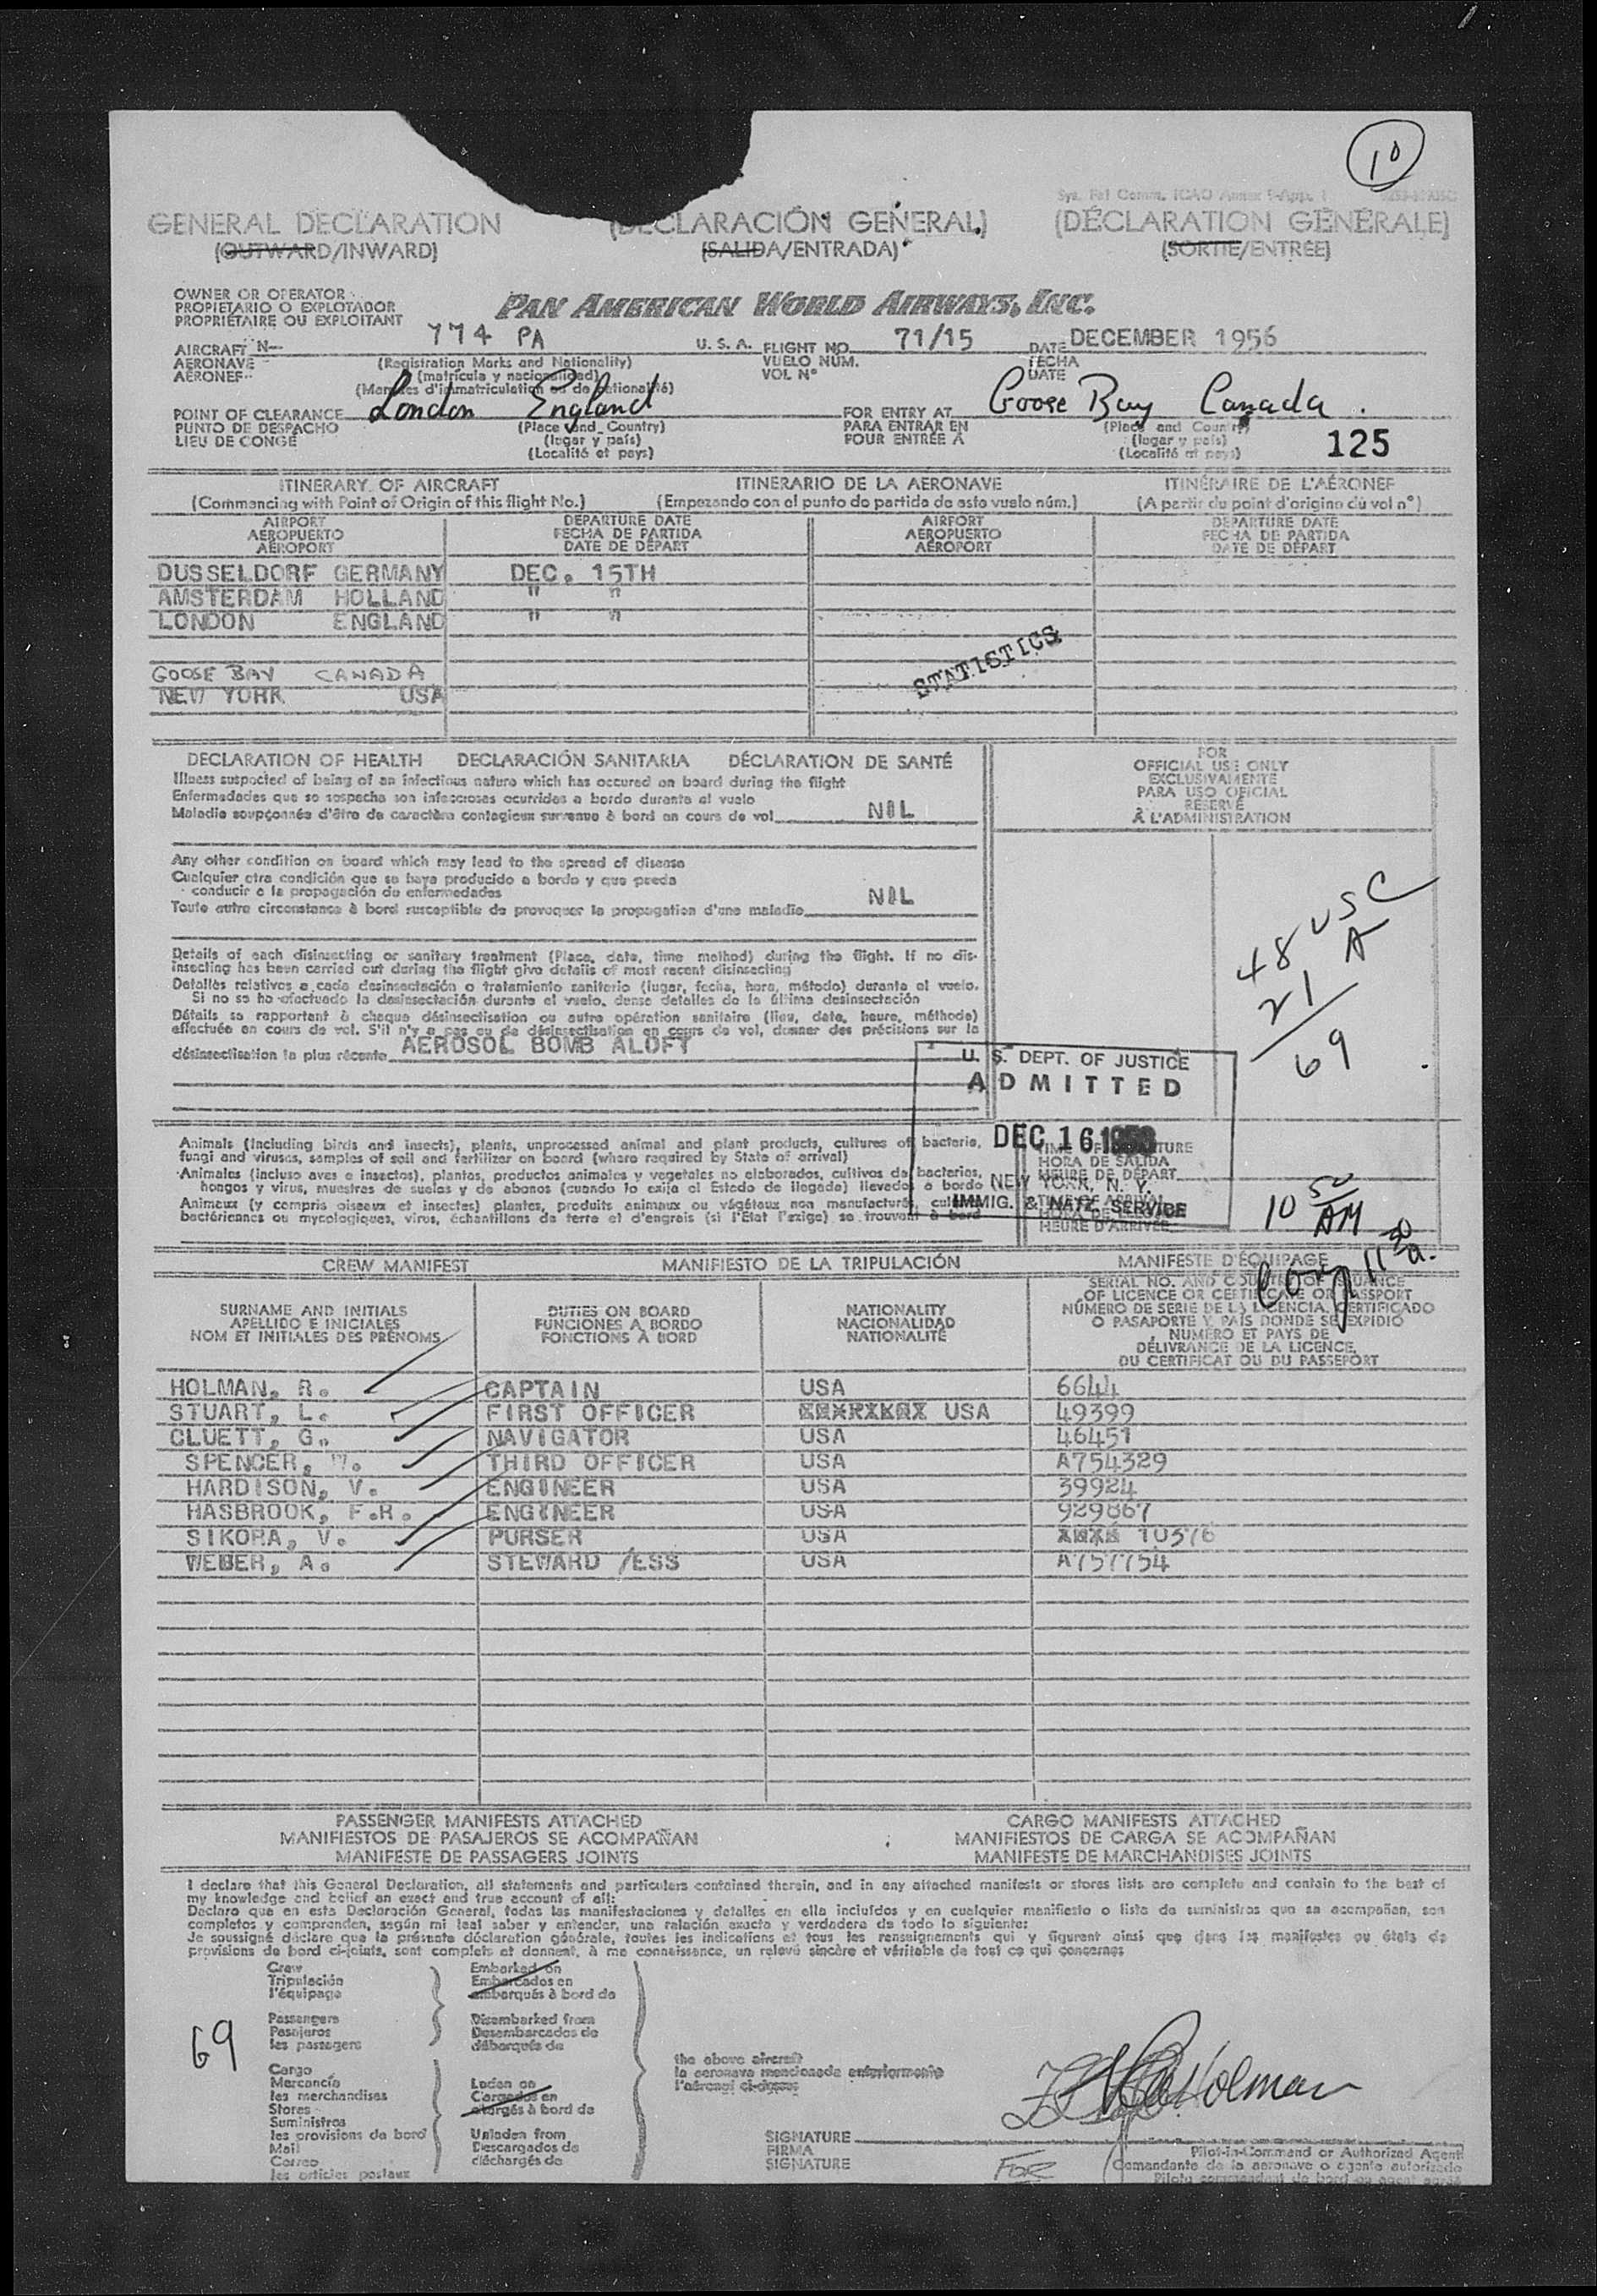 10
GENERAL DECLARATION
(OUTWARD/INWARD)
(DECLARACIÓN GENERAL)
(SALIDA/ENTRADA)
(DÉCLARATION GÉNÉRALE)
(SORTIE/ENTRÉE)
OWNER OR OPERATOR
PROPIETARIO O EXPLOTADOR
PROPRIÉTAIRE OU EXPLOITANT
PAN AMERICAN WORLD AIRWAYS, INC.
AIRCRAFT N— 774 PA U. S. A. FLIGHT NO. 71/15 DATE DECEMBER 1956
AERONAVE (Registration Marks and Nationality) VUELO NÚM. FECHA
AÉRONEF (matrícula y nacionalidad) VOL N° DATE
(Marques d'immatriculation ou de nationalité)
POINT OF CLEARANCE London England FOR ENTRY AT Goose Bay Canada.
PUNTO DE DESPACHO (Place and Country) PARA ENTRAR EN (Place and Country)
LIEU DE CONGÉ (lugar y país) POUR ENTRÉE À (lugar y país)
(Localité et pays) (Localité et pays)
125
ITINERARY OF AIRCRAFT ITINERARIO DE LA AERONAVE ITINÉRAIRE DE L'AÉRONEF
(Commencing with Point of Origin of this flight No.) (Empezando con el punto de partida de este vuelo núm.) (A partir du point d'origine du vol n°)
AIRPORT DEPARTURE DATE AIRPORT DEPARTURE DATE
AEROPUERTO FECHA DE PARTIDA AEROPUERTO FECHA DE PARTIDA
AÉROPORT DATE DE DÉPART AÉROPORT DATE DE DÉPART
DUSSELDORF GERMANY DEC. 15TH
AMSTERDAM HOLLAND " "
LONDON ENGLAND " "
STATISTICS
GOOSE BAY CANADA
NEW YORK USA
DECLARATION OF HEALTH DECLARACIÓN SANITARIA DÉCLARATION DE SANTÉ
Illness suspected of being of an infectious nature which has occured on board during the flight
Enfermedades que se sospecha son infecciosas ocurridas a bordo durante el vuelo
Maladie soupçonnée d'être de caractère contagieux survenue à bord en cours de vol NIL
FOR
OFFICIAL USE ONLY
EXCLUSIVAMENTE
PARA USO OFICIAL
RÉSERVÉ
À L'ADMINISTRATION
Any other condition on board which may lead to the spread of disease
Cualquier otra condición que se haya producido a bordo y que pueda
conducir a la propagación de enfermedades
Toute autre circonstance à bord susceptible de provoquer la propagation d'une maladie NIL
48 USC
21 A
69
Details of each disinsecting or sanitary treatment (Place, date, time method) during the flight. If no dis-
insecting has been carried out during the flight give details of most recent disinsecting
Detalles relativos a cada desinsectación o tratamiento sanitario (lugar, fecha, hora, método) durante el vuelo.
Si no se ha efectuado la desinsectación durante el vuelo, dense detalles de la última desinsectación
Détails se rapportant à chaque désinsectisation ou autre opération sanitaire (lieu, date, heure, méthode)
effectuée en cours de vol. S'il n'y a pas eu de désinsectisation en cours de vol, donner des précisions sur la
désinsectisation la plus récente AEROSOL BOMB ALOFT
U. S. DEPT. OF JUSTICE
ADMITTED
DEC 16 1956
NEW YORK, N. Y.
IMMIG. & NATZ. SERVICE
Animals (including birds and insects), plants, unprocessed animal and plant products, cultures of bacteria,
fungi and viruses, samples of soil and fertilizer on board (where required by State of arrival)
Animales (incluso aves e insectos), plantas, productos animales y vegetales no elaborados, cultivos de bacterias,
hongos y virus, muestras de suelos y de abonos (cuando lo exija el Estado de llegada) llevados a bordo
Animaux (y compris oiseaux et insectes) plantes, produits animaux ou végétaux non manufacturés, cultures
bactériennes ou mycologiques, virus, échantillons de terre et d'engrais (si l'Etat l'exige) se trouvant à bord
TIME OF DEPARTURE
HORA DE SALIDA
HEURE DE DÉPART
TIME OF ARRIVAL
HEURE D'ARRIVÉE
10 50 AM
11 30 a.
CREW MANIFEST MANIFIESTO DE LA TRIPULACIÓN MANIFESTE D'ÉQUIPAGE
SURNAME AND INITIALS
APELLIDO E INICIALES
NOM ET INITIALES DES PRÉNOMS
DUTIES ON BOARD
FUNCIONES A BORDO
FONCTIONS À BORD
NATIONALITY
NACIONALIDAD
NATIONALITÉ
SERIAL NO. AND COUNTRY OF ISSUANCE
OF LICENCE OR CERTIFICATE OR PASSPORT
NÚMERO DE SERIE DE LA LICENCIA, CERTIFICADO
O PASAPORTE Y PAÍS DONDE SE EXPIDIÓ
NUMÉRO ET PAYS DE
DÉLIVRANCE DE LA LICENCE,
DU CERTIFICAT OU DU PASSEPORT
HOLMAN, R. CAPTAIN USA 6644
STUART, L. FIRST OFFICER USA 49399
CLUETT, G. NAVIGATOR USA 46451
SPENCER, THIRD OFFICER USA A754329
HARDISON, V. ENGINEER USA 39924
HASBROOK, F.H. ENGINEER USA 929867
SIKORA, V. PURSER USA 10376
WEBER, A. STEWARD /ESS USA A757754
PASSENGER MANIFESTS ATTACHED CARGO MANIFESTS ATTACHED
MANIFIESTOS DE PASAJEROS SE ACOMPAÑAN MANIFIESTOS DE CARGA SE ACOMPAÑAN
MANIFESTE DE PASSAGERS JOINTS MANIFESTE DE MARCHANDISES JOINTS
I declare that this General Declaration, all statements and particulars contained therein, and in any attached manifests or stores lists are complete and contain to the best of
my knowledge and belief an exact and true account of all:
Declaro que en esta Declaración General, todas las manifestaciones y detalles en ella incluídos y en cualquier manifiesto o lista de suministros que se acompañan, son
completos y comprenden, según mi leal saber y entender, una relación exacta y verdadera de todo lo siguiente:
Je soussigné déclare que la présente déclaration générale, toutes les indications et tous les renseignements qui y figurent ainsi que dans les manifestes ou états de
provisions de bord ci-joints, sont complets et donnent, à ma connaissance, un relevé sincère et véritable de tout ce qui concerne:
Crew Embarked on
Tripulación Embarcados en
l'équipage embarqués à bord de
69
Passengers Disembarked from
Pasajeros Desembarcados de
les passagers débarqués de
the above aircraft
la aeronave mencionada anteriormente
l'aéronef ci-dessus
Cargo
Mercancía Laden on
les merchandises Cargados en
Stores chargés à bord de
Suministros
les provisions de bord Unladen from
Mail Descargados de
Correo déchargés de
les articles postaux
Holman
SIGNATURE
FIRMA
SIGNATURE
FOR
Pilot-in-Command or Authorized Agent
Comandante de la aeronave o agente autorizado
Pilote commandant de bord ou agent agréé